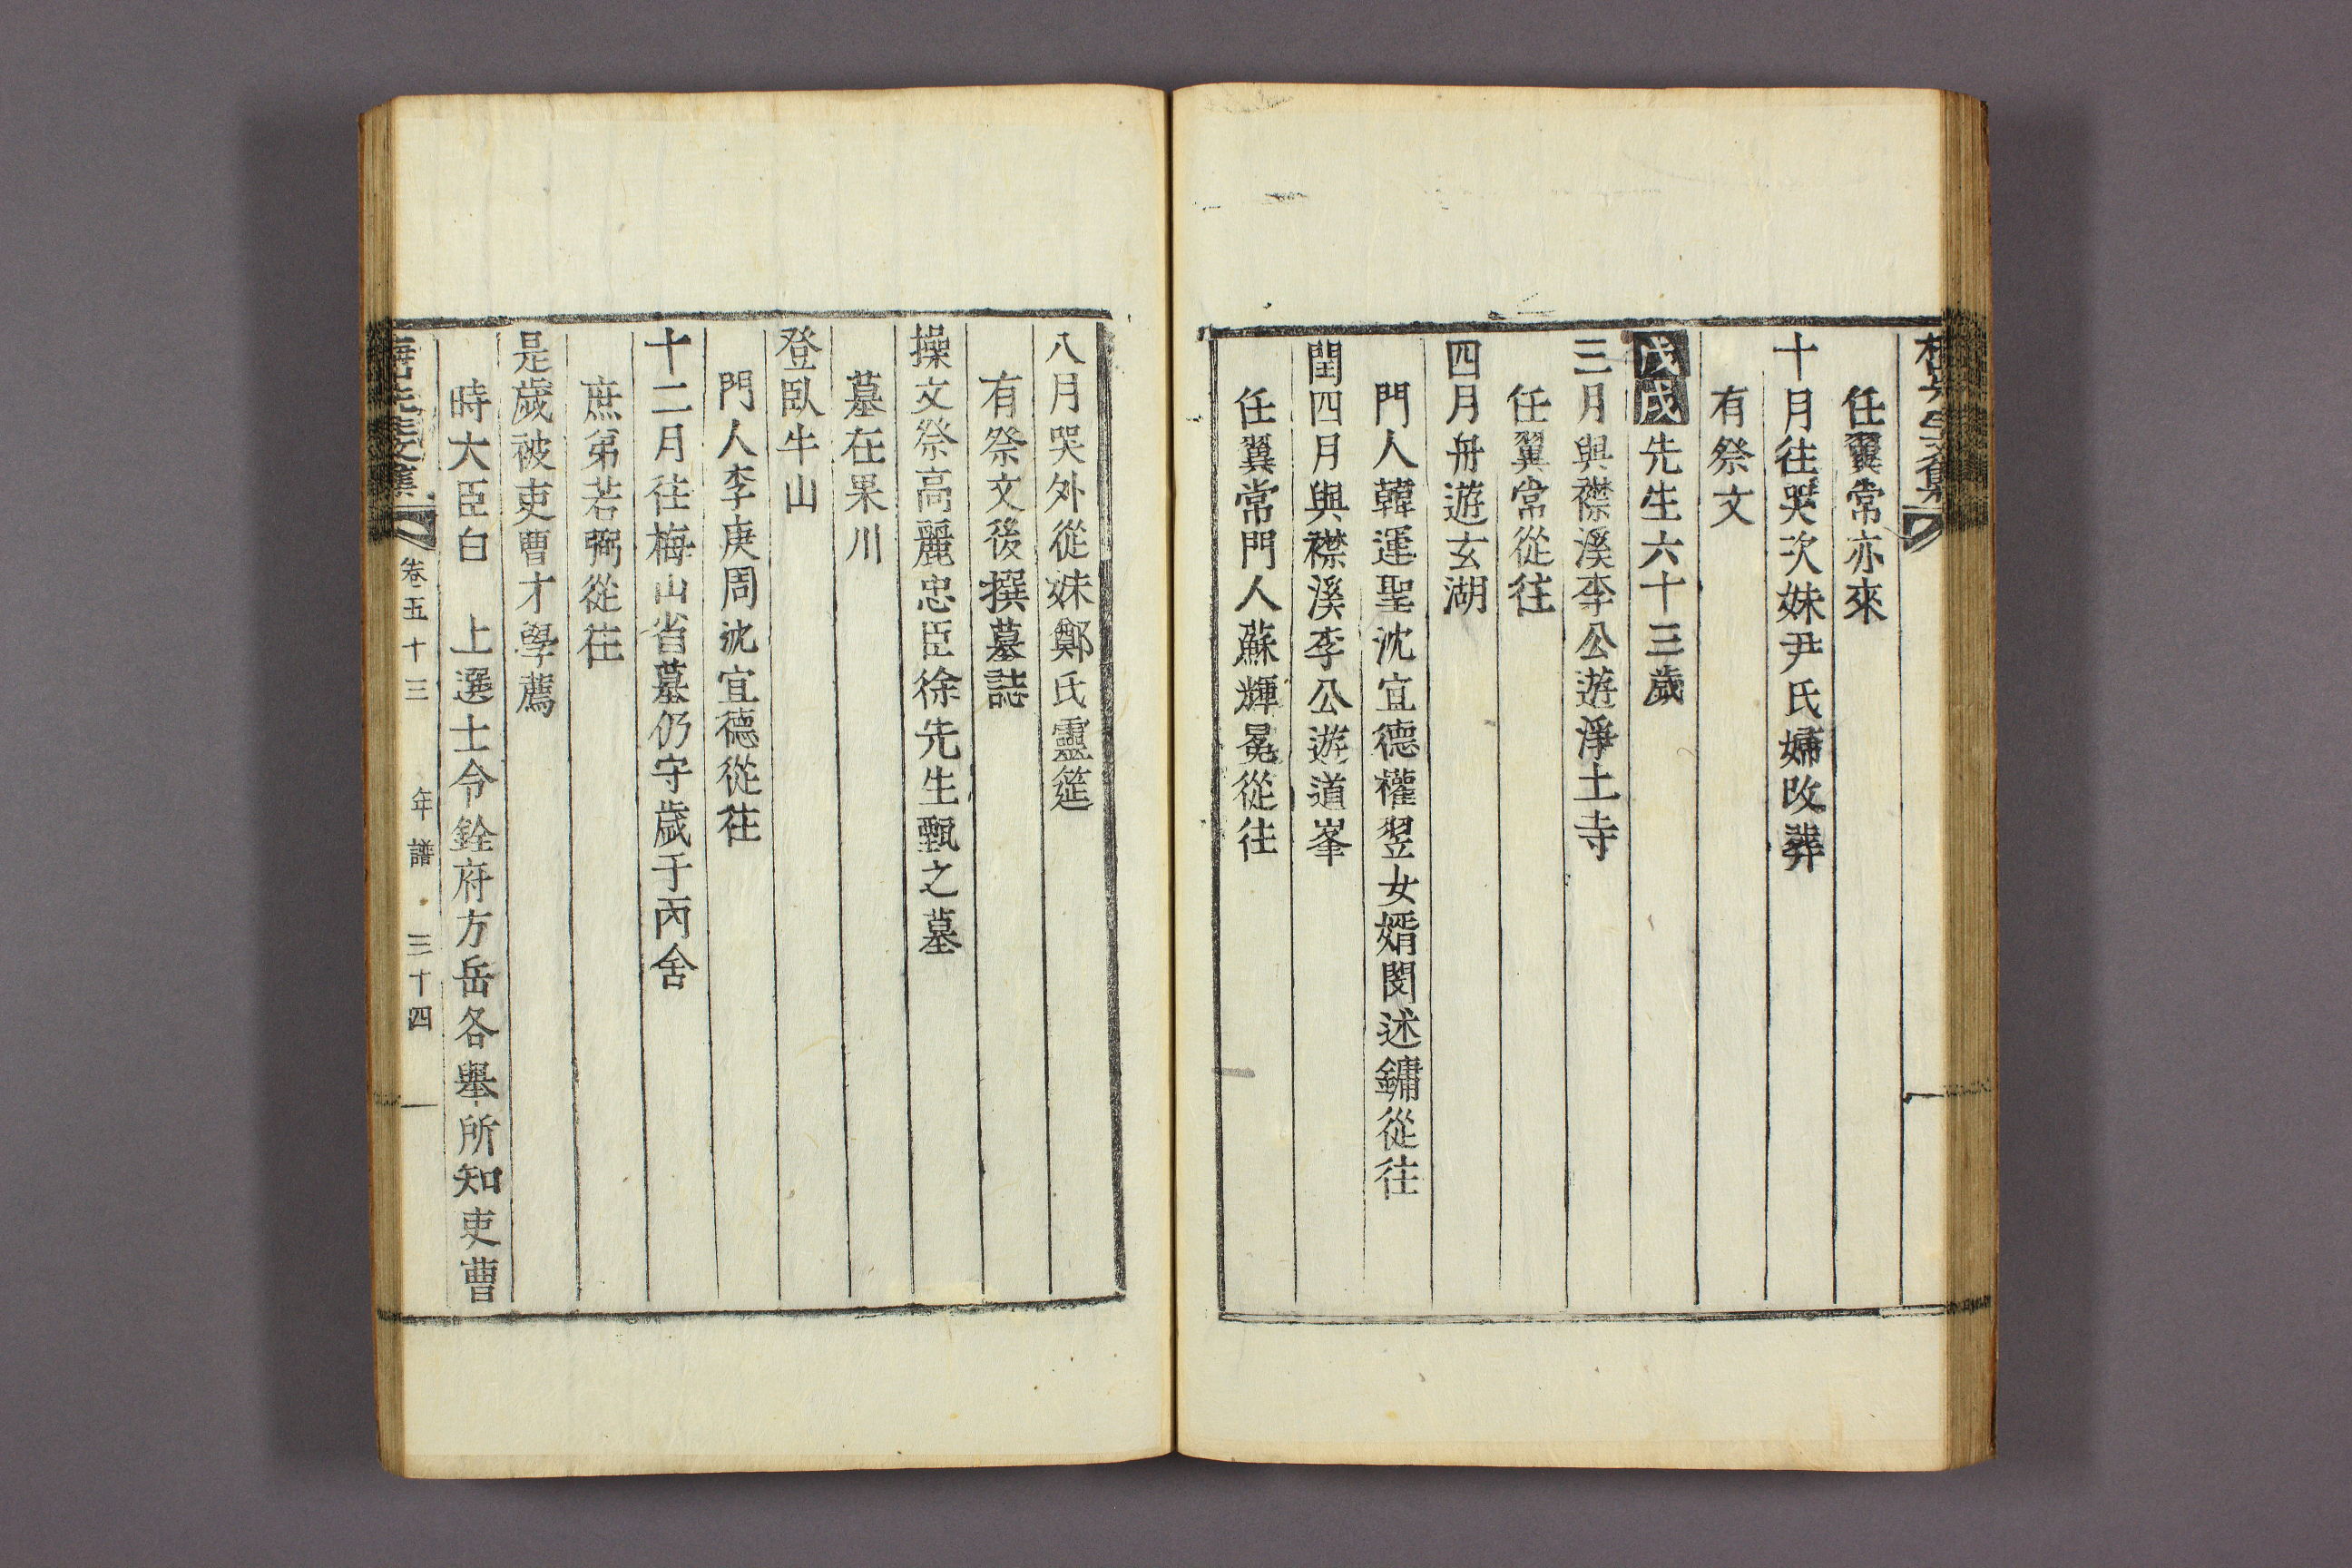 任翼常亦來
十月往哭次妹尹氏婦改葬
有祭文
戊戌先生六十三歲
三月與襟溪李公遊淨土寺
任翼常從往
四月舟遊玄湖
門人韓運聖沈宜德權翌女婿閔述鏞從往
閏四月與襟溪李公遊道峯
任翼常門人蘇輝冕從往
八月哭外從妹鄭氏靈筵
有祭文後撰墓誌
操文祭高麗忠臣徐先生甄之墓
墓在果川
登臥牛山
門人李庚周沈宜德從往
十二月往梅山省墓仍守歲于丙舍
庶弟若弼從往
是歲被吏曹才學薦
時大臣白 上選士令銓府方岳各舉所知吏曹
卷五十三 年譜 三十四